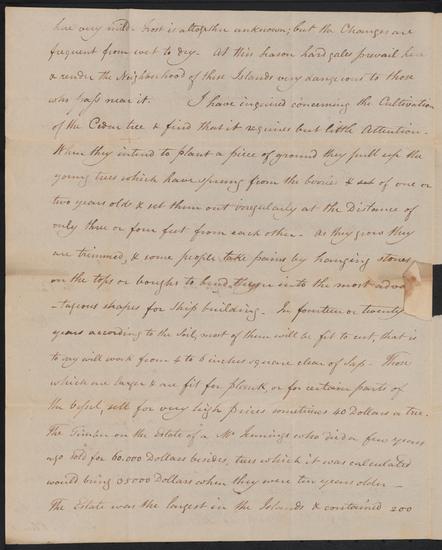 here very mild frost is altogether unknown; but the Changes are
frequent from wet to dry - At this season hard gales prevail here
& render the Neighbourhood of these Islands very dangerous to those
who pass near it. I have inquired concerning the Cultivation
of the Cedar tree & find that it requires but little Attention -
When they intend to plant a piece of ground they pull up the
young trees which have sprung from the & of one or
two years old & set them out irregularly at the Distance of
only three or four feet from each other - As they grow they
are trimmed, & some people take pains by hanging stones
on the tops or boughs to bend them into the most adva
-tageous shapes for Ship building - In fourteen or twenty
years according to the Soil, most of them will be fit to cut, that is
to say will work from 4 to 6 inches square clear of Sap - Those
which are larger & are fit for plank, or for certain parts of
the vessel, sell for very high prices sometimes 40 Dollars a tree -
The Timber on the Estate of a Mr Jennings who died a few years
ago sold for 60.000 Dollars besides, trees which it was calculated
would bring 35000 Dollars when they were ten years older -
The Estate was the largest in the Islands & contained 200